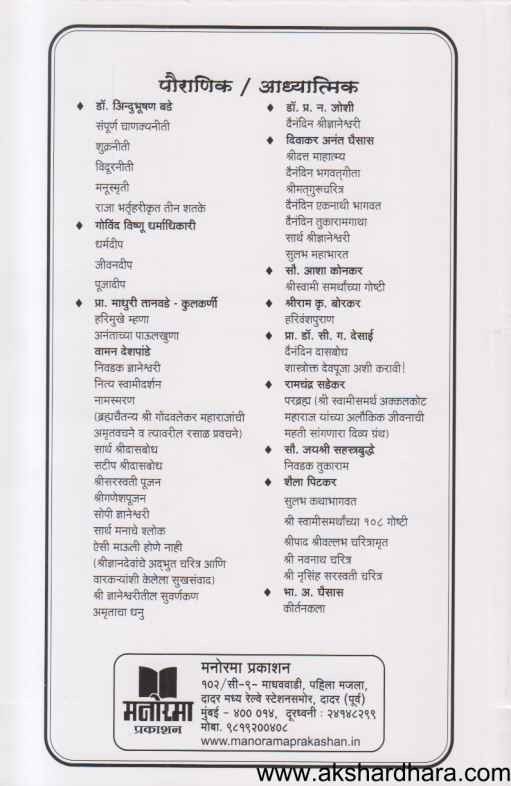 पौराणिक / आध्यात्मिक
♦ डॉ. अिन्दुभूषण बडे
संपूर्ण चाणक्यनीती
शुक्रनीती
विदूरनीती
मनूस्मृती
राजा भर्तृहरीकृत तीन शतके
♦ गोविंद विष्णू धर्माधिकारी
धर्मदीप
जीवनदीप
पूजादीप
♦ प्रा. माधुरी तानवडे - कुलकर्णी
हरिमुखे म्हणा
अनंताच्या पाऊलखुणा
वामन देशपांडे
निवडक ज्ञानेश्वरी
नित्य स्वामीदर्शन
नामस्मरण
(ब्रह्मचैतन्य श्री गोंदवलेकर महाराजांची
अमृतवचने व त्यावरील रसाळ प्रवचने)
सार्थ श्रीदासबोध
सटीप श्रीदासबोध
श्रीसरस्वती पूजन
श्रीगणेशपूजन
सोपी ज्ञानेश्वरी
सार्थ मनाचे श्लोक
ऐसी माऊली होणे नाही
(श्रीज्ञानदेवांचे अद्भुत चरित्र आणि
वारकऱ्यांशी केलेला सुखसंवाद)
श्री ज्ञानेश्वरीतील सुवर्णकण
अमृताचा धनु
♦ डॉ. प्र. न. जोशी
दैनंदिन श्रीज्ञानेश्वरी
♦ दिवाकर अनंत घैसास
श्रीदत्त माहात्म्य
दैनंदिन भगवत्‌गीता
श्रीमत्‌गुरुचरित्र
दैनंदिन एकनाथी भागवत
दैनंदिन तुकारामगाथा
सार्थ श्रीज्ञानेश्वरी
सुलभ महाभारत
♦ सौ. आशा कोनकर
श्रीस्वामी समर्थांच्या गोष्टी
♦ श्रीराम कृ. बोरकर
हरिवंशपुराण
♦ प्रा. डॉ. सी. ग. देसाई
दैनंदिन दासबोध
शास्त्रोक्त देवपूजा अशी करावी!
♦ रामचंद्र सडेकर
परब्रह्म (श्री स्वामीसमर्थ अक्कलकोट
महाराज यांच्या अलौकिक जीवनाची
महती सांगणारा दिव्य ग्रंथ)
♦ सौ. जयश्री सहस्त्रबुद्धे
निवडक तुकाराम
♦ शैला पिटकर
सुलभ कथाभागवत
श्री स्वामीसमर्थांच्या १०८ गोष्टी
श्रीपाद श्रीवल्लभ चरित्रामृत
श्री नवनाथ चरित्र
श्री नृसिंह सरस्वती चरित्र
♦ भा. अ. घैसास
कीर्तनकला
मनोरमा
प्रकाशन
मनोरमा प्रकाशन
१०२/सी-९- माधववाडी, पहिला मजला,
दादर मध्य रेल्वे स्टेशनसमोर, दादर (पूर्व)
मुंबई - ४०० ०१४, दूरध्वनी : २४१४८२९९
मोबा. ९८१९२००४०८
www.manoramaprakashan.in
www.akshardhara.com